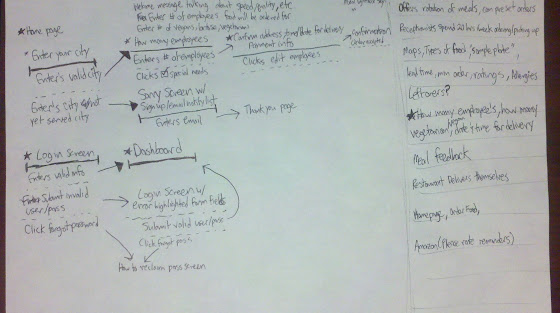 Welcome message talking about speed/quality, etc.
Enter # of employees food will be ordered for
Enter # of vegans/lactose/vegetarians
★ Home page
★ How many employees
Enter your city
Enters valid city
Enters # of employees
Clicks special meals
★ Confirm address, time/date for delivery
Payment info
Clicks edit employees
Confirmation
Order received
Enters city not
yet served city
Sorry Screen w/
Signup/email notify list
Enters email
Thank you page
★ Login Screen
Enters valid info
★ Dashboard
Submit invalid
user/pass
Login Screen w/
error highlighted form fields
Submit valid user/pass
Click forgot password
Click forgot pass.
How to reclaim pass screen
Offers rotation of meals, can pre set orders
Receptionists spend 20 hrs/week ordering/picking up
Maps, Types of food "sample plate",
lead time, min order, ratings, Allergies
Leftovers?
★ How many employee's, how many
vegetarian, date & time for delivery
Meal feedback
Restaurant Delivers themselves
Homepage, Order Food,
Amazon (Please rate reminders)